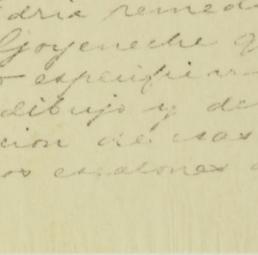 dria remed
Goyeneche q
especifi
dibujo y de
cion de esas
os escalones